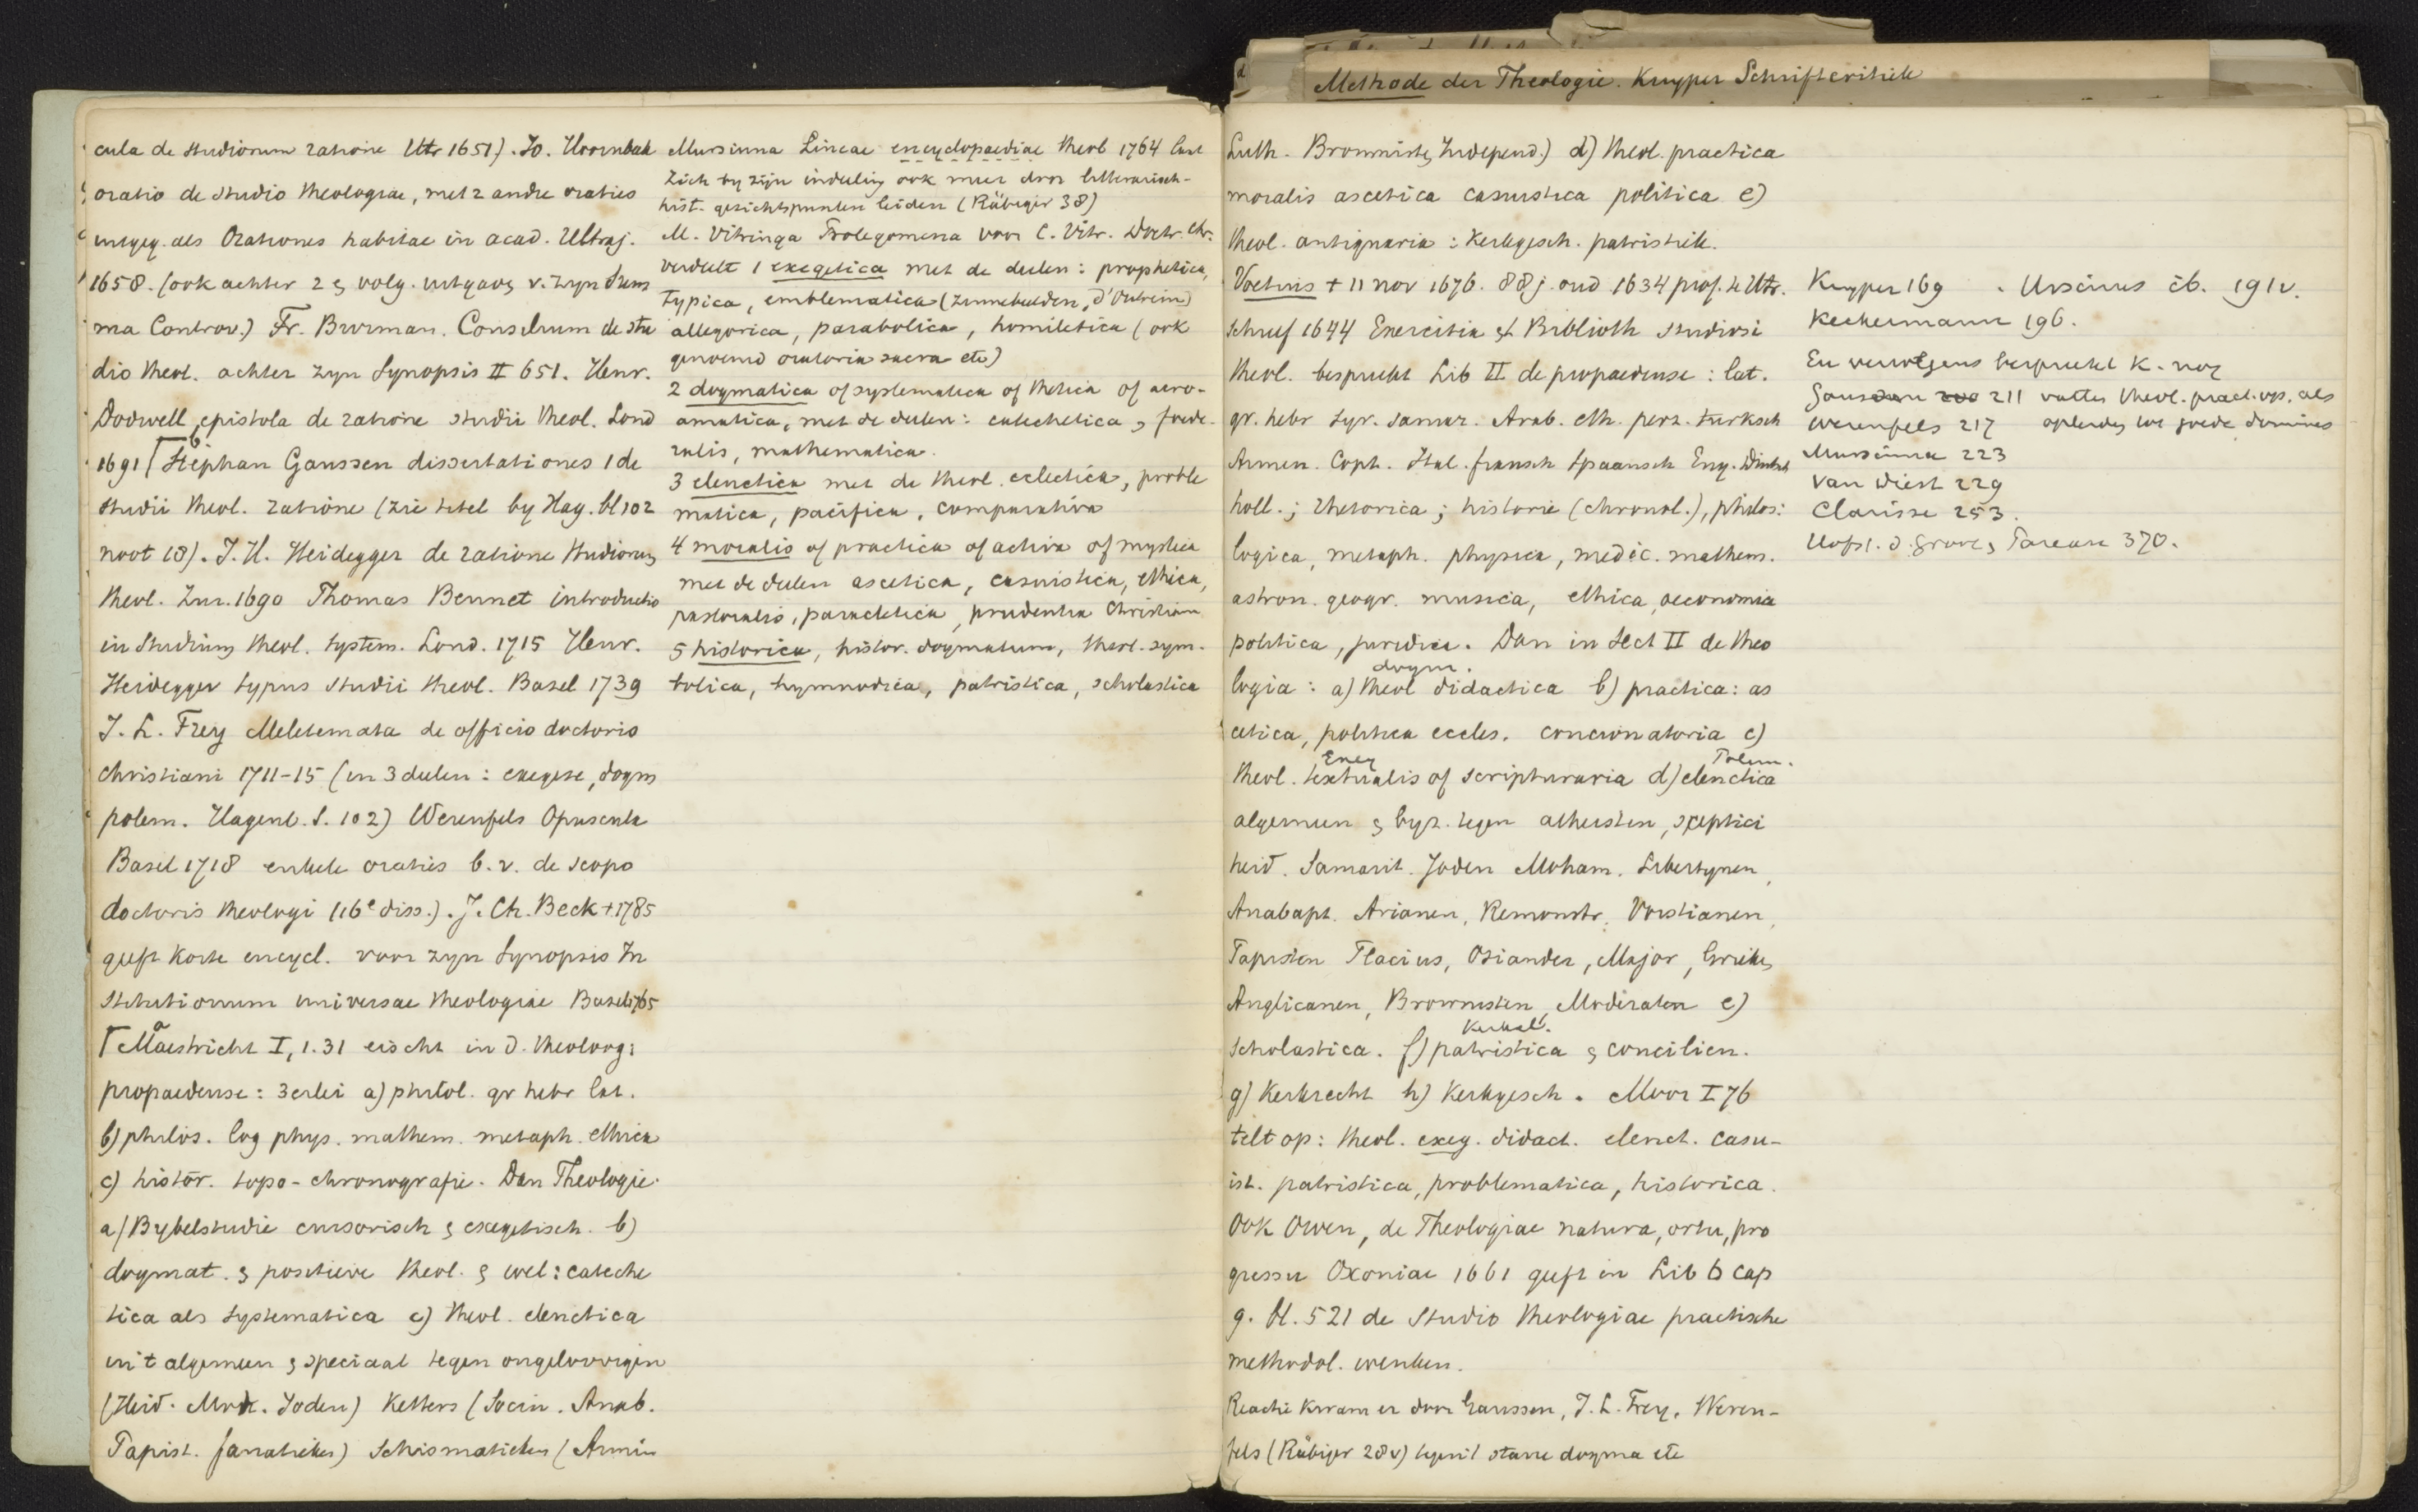 cula de studiorum ratione Utr 1651). Jo. Hoornbeek
oratio de studio theologiae, met 2 andre oraties
uitgeg. als Orationes habitae in acad. Ultraj.
1658. (ook achter 2e volg. uitgave v. zyn Sum
ma Controv.) Fr. Burman. Consilium de stu
dio theol. achter zyn Synopsis II 651. Henr.
Dodwell, epistola de ratione studii theol. Lond
1691 [b Stephan Gaussen dissertationes 1 de
studii theol. ratione (zie titel by Hag. bl 102
noot 18). J. H. Heidegger de ratione studiorum
theol. Zur. 1690 Thomas Bennet introductio
in studium theol. system. Lond. 1715 Henr.
Heidegger typus studii theol. Basel 1739
J. L. Frey Meletemata de officio doctoris
christiani 1711-15 (in 3 deelen: exegese, dogm
polem. Hagenb. S. 102) Werenfels Opuscula
Basel 1718 enkele oraties b.v. de scopo
doctoris theologi (16e diss.). J. Ch. Beck + 1785
geeft korte encycl. voor zyn Synopsis In
stitutionum universae theologiae Basel 1765
[a Maestricht I, 1.31 eischt in d. theoloog:
propaedeuse: 3erlei a) philol. gr hebr lat.
b) philos. log phys. mathem. metaph. ethica
c) histor. topo-chronografie. Dan Theologie.
a) Bybelstudie cursorisch & exegetisch. b)
dogmat. & positieve theol. & wel: cateche
tica als systematica c) theol. elenctica
in 't algemeen & speciaal tegen ongeloovigen
(Heid. Moh. Joden) Ketters (Socin. Anab.
Papist. fanatieken) Schismatieken (Armin
Mursinna Lineae encyclopaediae theol 1764 laat
zich by zijn indeeling ook meer door litterarisch-
hist. gezichtspunten leiden (Räbiger 38)
M. Vitringa Prolegomena voor C. Vitr. Doctr. Chr.
verdeelt 1 exegetica met de deelen: prophetica,
typica, emblematica (zinnebeelden, d'Outrein)
allegorica, parabolica, homiletica (ook
genoemd oratoria sacra etc)
2 dogmatica of systematica of thetica of acro-
amatica, met de deelen: catechetica, foede-
ralis, mathematica.
3 elenctica met de theol. eclectica, proble
matica, pacifica, comparativa
4 moralis of practica of activa of mystica
met de deelen ascetica, casuistica, ethica,
pastoralis, paracletica, prudentia Christiana
5 historica, histor. dogmatum, theol. sym-
bolica, hymnodica, patristica, scholastica
Methode der Theologie. Kuyper Schriftcritiek
Luth. Brownisten, Independ.) d) theol. practica
moralis ascetica casuistica politica e)
theol. antiquaria: Kerkgesch. patristiek.
Voetius + 11 nov 1676. 88 j. oud 1634 prof. te Utr.
schreef 1644 Exercitia et Biblioth studiosi
theol. bespreekt Lib II de propaedeuse: lat.
gr. hebr syr. samar. Arab. eth. perz. turksch
Armen. Copt. Ital. fransch spaansch Eng. Duitsch
holl.; rhetorica; historie (chronol.), philos:
logica, metaph. physica, medic. mathem.
astron. geogr. musica, ethica, oeconomia
politica, juridica. Dan in sect II de theo
dogm.
logia: a) theol didactica b) practica: as
cetica, politica eccles. concionatoria c)
Exeg Polem.
theol. textualis of scripturaria d) elenctica
algemeen & byz. tegen atheisten, sceptici
heid. Samarit. Joden Moham. Libertynen,
Anabapt. Arianen, Remonstr. Vorstianen,
Papisten Flacius, Osiander, Major, Grieken
Anglicanen, Brownisten, Moderaten e)
Kerkel.
scholastica. f) patristica & concilien.
g) Kerkrecht h) Kerkgesch. Moor I 76
telt op: theol. exeg. didact. elenct. casu-
ist. patristica, problematica, historica.
Ook Owen, de Theologiae natura, ortu, pro
gressu Oxoniae 1661 geeft in Lib 6 cap
9. bl. 521 de Studio theologiae practische
methodol. wenken.
Reactie kwam er door Gaussen, J. L. Frey, Weren-
fels (Räbiger 28v) tegen 't starre dogma etc
Kuyper 169. Ursinus ib. 191v.
Keckermann 196.
En vervolgens bespreekt K. nog
Gaussen 211 vatten theol. pract. op. als
Werenfels 217 opleiding tot goede dominees
Mursinna 223
van Diest 229
Clarisse 253.
Hofst. d. Groot, Pareau 370.